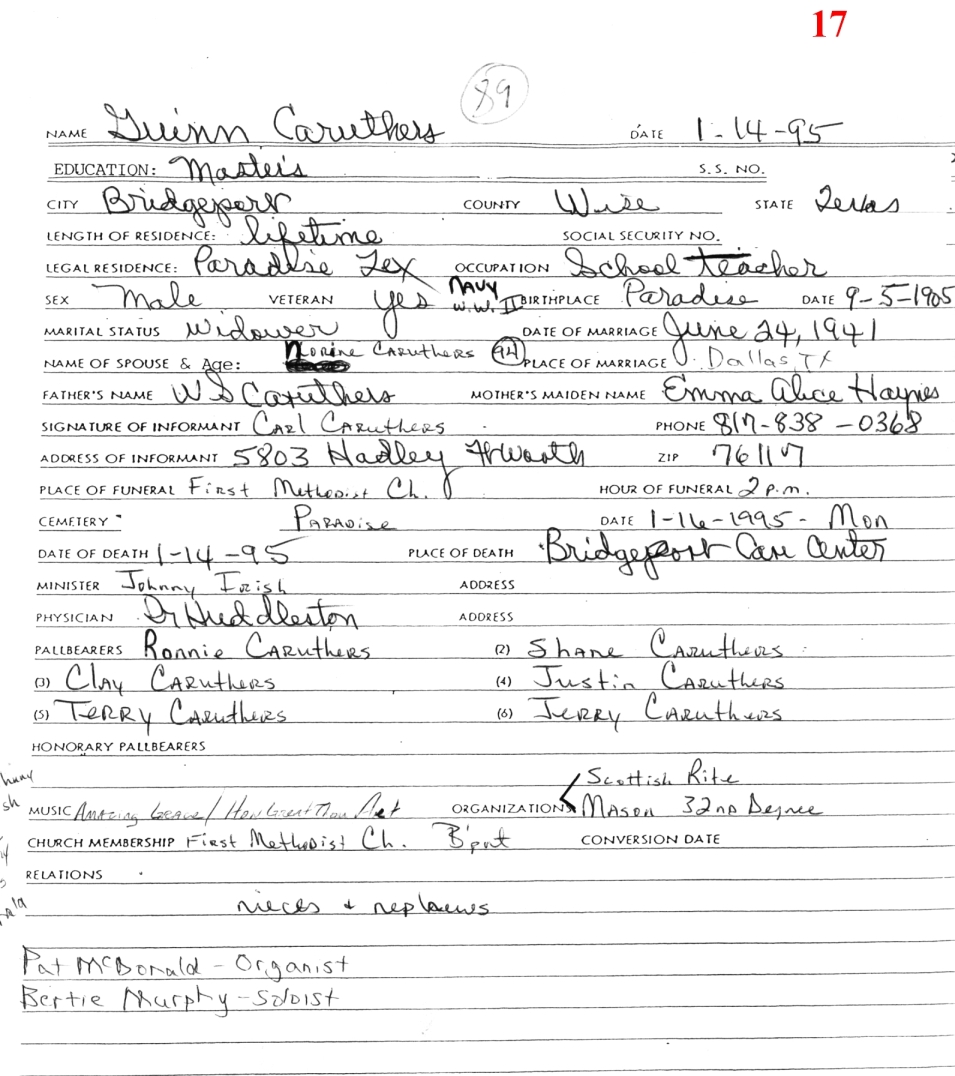 17
89
NAME Guinn Caruthers DATE 1-14-95
EDUCATION: Master's S.S. NO.
CITY Bridgeport COUNTY Wise STATE Texas
LENGTH OF RESIDENCE: lifetime SOCIAL SECURITY NO.
LEGAL RESIDENCE: Paradise Tex OCCUPATION School teacher
SEX Male VETERAN yes NAVY W.W. II BIRTHPLACE Paradise DATE 9-5-1905
MARITAL STATUS Widower DATE OF MARRIAGE June 24, 1941
NAME OF SPOUSE & Age: Norine Caruthers 94 PLACE OF MARRIAGE Dallas, TX
FATHER'S NAME W S Caruthers MOTHER'S MAIDEN NAME Emma Alice Haynes
SIGNATURE OF INFORMANT Carl Caruthers PHONE 817-838-0368
ADDRESS OF INFORMANT 5803 Hadley Ft Worth ZIP 76117
PLACE OF FUNERAL First Methodist Ch. HOUR OF FUNERAL 2 p.m.
CEMETERY Paradise DATE 1-16-1995 - Mon
DATE OF DEATH 1-14-95 PLACE OF DEATH Bridgeport Care Center
MINISTER Johnny Irish ADDRESS
PHYSICIAN Dr Huddleston ADDRESS
PALLBEARERS Ronnie Caruthers (2) Shane Caruthers
(3) Clay Caruthers (4) Justin Caruthers
(5) Terry Caruthers (6) Jerry Caruthers
HONORARY PALLBEARERS
Scottish Rite
MUSIC Amazing Grace / How Great Thou Art ORGANIZATIONS Mason 32nd Degree
CHURCH MEMBERSHIP First Methodist Ch. B'port CONVERSION DATE
RELATIONS
nieces + nephews
Pat McDonald - Organist
Bertie Murphy - Soloist